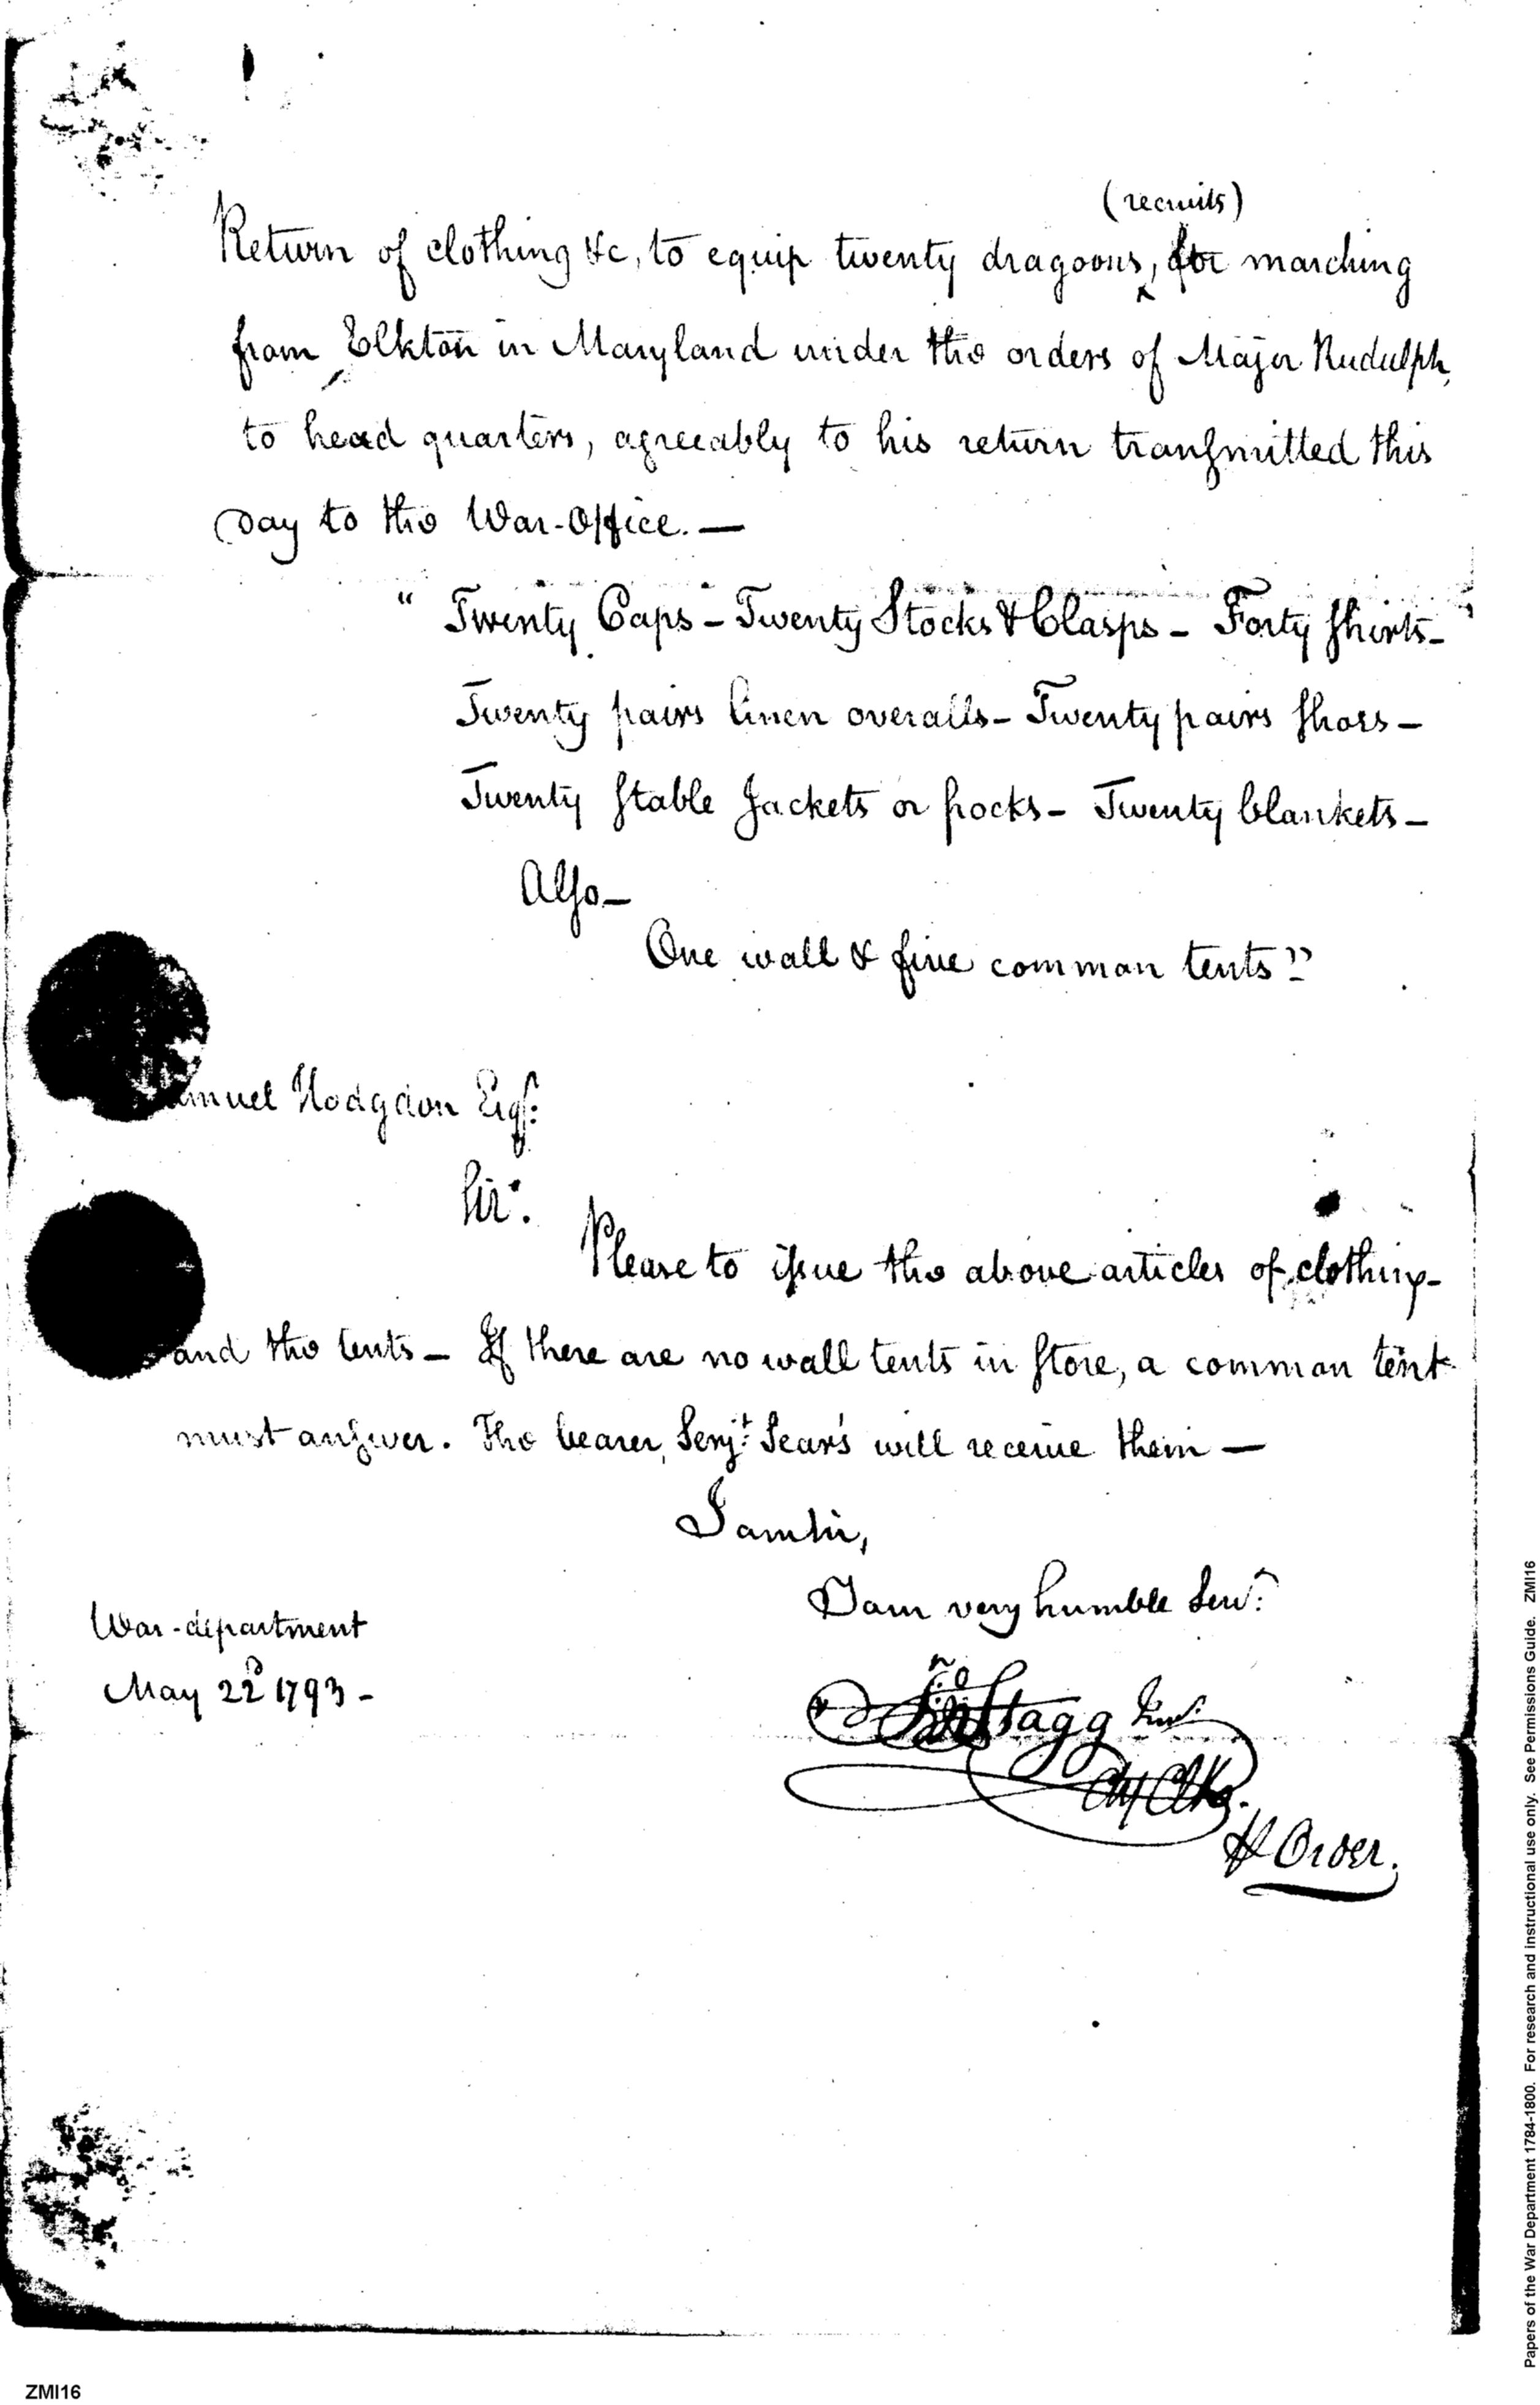 (recruits)
Return of clothing &c, to equip twenty dragoons, for marching
from Elkton in Maryland under the orders of Major Rudulph,
to head quarters, agreeably to his return transmitted this
Day to the War-Office. —
“ Twenty Caps – Twenty Stocks & Clasps – Forty shirts –
Twenty pairs linen overalls – Twenty pairs shoes –
Twenty stable Jackets or frocks – Twenty blankets –
Also –
One wall & five common tents”
amuel Hodgdon Esqr:
Sir.
Please to issue the above articles of clothing –
and the tents – If there are no wall tents in store, a common tent
must answer. The bearer, Serjt: Sears will receive them —
I am Sir,
Your very humble Servt:
War-department
May 22d 1793 –
Jno Stagg Junr:
Chf Clk.
₽ Order.
Papers of the War Department 1784-1800. For research and instructional use only. See Permissions Guide. ZMI16
ZMI16